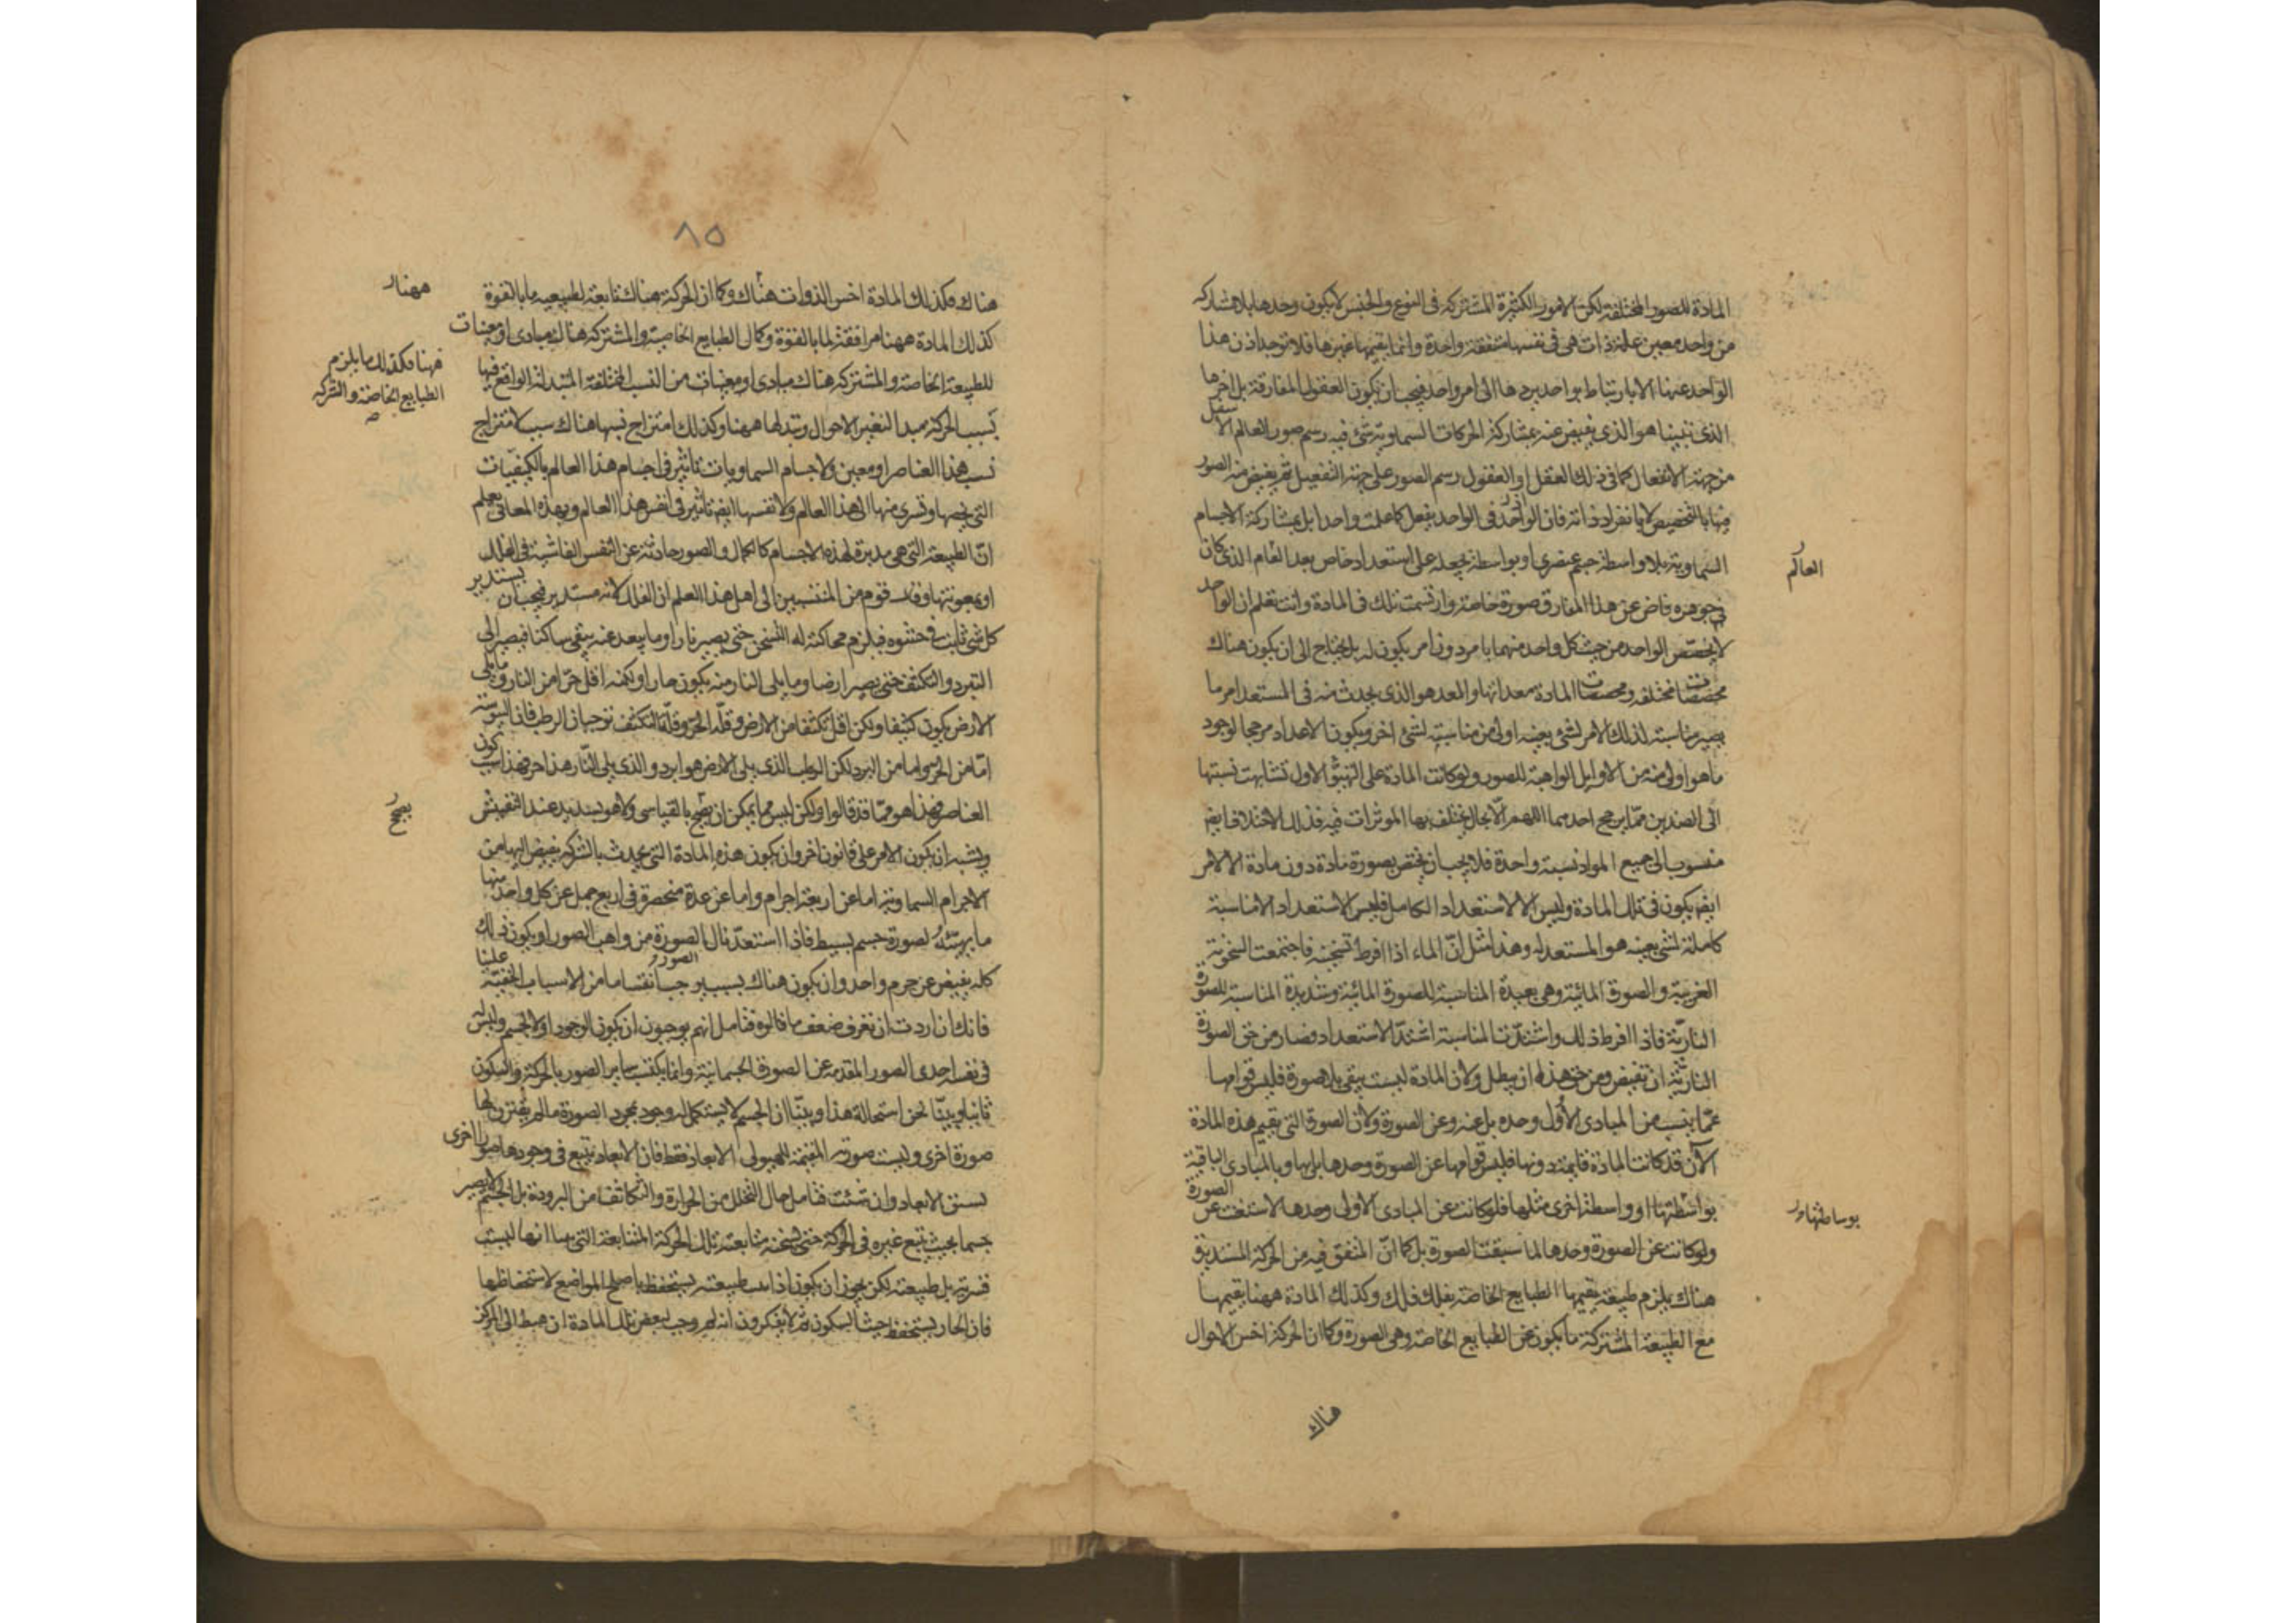 المادة للصور المختلفة لكن الامور الكثيرة المشتركة فى النوع والجنس لا يكون وحدها بلا مشاركة
من واحد معين علة لذات هى فى نفسها متفقة واحدة وانما يقيمها غيرها فلا توجد اذن هذا
الواحد عنها الا بارتباط بواحد يردها الى امر واحد فيجب ان يكون العقول المفارقة بل اخرها
الذى يلينا هو الذى يفيض عنه بمشاركة الحركات السماوية شئ فيه رسم صور العالم الاسفل
من جهة الانفعال كما فى ذلك العقل او العقول رسم الصور على جهة التفعيل ثم يفيض منه الصور
فيها بالتخصيص لا بانفراد ذاته فان الواحد فى الواحد يفعل كما علمت واحدا بل بمشاركة الاجسام
السماوية بلا واسطة جسم عنصرى او بواسطة يجعله على استعداد خاص بعد العام الذى كان
العالم
فى جوهره فاض عن هذا المفارق صورة خاصة وارتسمت تلك فى المادة وانت تعلم ان الواحد
لا يخصص الواحد من حيث كل واحد منهما بامر دون امر يكون له بل يحتاج الى ان يكون هناك
مخصصات مختلفة ومخصصات المادة معداتها والمعد هو الذى يحدث منه فى المستعد امر ما
يصير مناسبته لذلك الامر لشئ بعينه اولى من مناسبته لشئ اخر ويكون الاعداد مرجحا لوجود
ما هو اولى منه من الاوايل الواهبة للصور ولو كانت المادة على التهيؤ الاول تشابهت نسبتها
الى الضدين فما يرجح احدهما اللهم الا بحال يختلف بها الموثرات فيه فذلك الاختلاف ايضا
منسوب الى جميع المواد نسبة واحدة فلا يجب ان يختص بصورة مادة دون مادة الا لامر
ايضا يكون فى تلك المادة وليس الا الاستعداد الكامل فليس الاستعداد الا مناسبة
كاملة لشئ بعينه هو المستعد له وهذا مثل انّ الماء اذا افرط تسخينه فاجتمعت السخونة
الغريبة والصورة المائية وهى بعيدة المناسبة للصورة المائية وشديدة المناسبة للصورة
النارية فاذا افرط ذلك واشتدّت المناسبة اشتدّ الاستعداد فصار من حق الصورة
النارية ان تفيض ومن حق هذه ان يبطل ولان المادة ليست يبقى بلا صورة فليس قوامها
عمّا ينسب من المبادى الاُوَل وحده بل عنه وعن الصورة ولان الصورة التى يقيم هذه المادة
الآن قد كانت المادة قايمة دونها فليس قوامها عن الصورة وحدها بل بها وبالمبادى الباقية
بواسطتها او واسطة اخرى مثلها فلو كانت عن المبادى الاولى وحدها لاستغنت عن الصورة
بوساطتها
ولو كانت عن الصورة وحدها لما سبقت الصورة بل كما انّ المتفق فيه من الحركة المستديرة
هناك يلزم طبيعة يقيمها الطبايع الخاصة بفلك فلك وكذلك المادة ههنا يقيمها
مع الطبيعة المشتركة ما يكون عن الطبايع الخاصة وهى الصورة وكما ان الحركة اخس الاحوال
هناك
٨٥
هناك فكذلك المادة اخس الذوات هناك وكما ان الحركة هناك تابعة لطبيعة ما بالقوة
ههنا
كذلك المادة ههنا مرافقة لما بالقوة وكما ان الطبايع الخاصة والمشتركة هناك مبادى او معينات
فهنا فكذلك ما يلزم
الطبايع الخاصة والمشتركة
للطبيعة الخاصة والمشتركة هناك مبادى او معينات من النسب المختلفة المتبدلة الواقع فيها
بسبب الحركة مبدا لتغير الاحوال وتبدلها ههنا وكذلك امتزاج نسبها هناك سبب لامتزاج
نسب هذه العناصر او معين ولاجسام السماويات تاثير فى اجسام هذا العالم بالكيفيّات
التى يخصها وتسرى منها الى هذا العالم ولانفسها ايضا تاثير فى انفس هذا العالم وبهذه المعانى يعلم
انّ الطبيعة التى هى مدبرة لهذه الاجسام كالكمال والصور حادثة عن النفس الفاشية فى الفلك
او بمعونتها وقال قوم من المنتسبين الى اهل هذا العلم ان الفلك لانه مستدير فيجب ان يستدير
كل شئ ثابت فى حشوه فيلزم محاكته له التسخن حتى يصير نارا وما يبعد عنه يبقى ساكنا فيصير الى
التبرد والتكثف حتى يصير ارضا وما يلى النار منه يكون حارا ولكنه اقل حرّا من النار وما يلى
الارض يكون كثيفا ولكن اقل تكثفا من الارض وقلّة الحرّ وقلّة التكثف توجبان الرطب فان اليبوسة
امّا من الحرّ واما من البرد لكن الرطب الذى يلى الارض هو ابرد والذى يلى النّار هذا احر فهذا سبب كون
العناصر فهذا هو ممّا قد قالوا ولكن ليس مما يمكن ان يصحح بالقياس ولا هو بسديد عند التفتيش
يصح
ويشبه ان يكون الامر على قانون اخر وان يكون هذه المادة التى يحدث بالشركة يفيض اليها من
الاجرام السماوية اما عن اربعة اجرام واما عن عدة منحصرة فى اربع جمل عن كل واحد منها
ما يهيّئه لصورة جسم بسيط فاذا استعدّ نال الصورة من واهب الصور او يكون ذلك
كله يفيض عن جرم واحد وان يكون هناك بسبب يوجب انقساما من الاسباب الخفيّة علينا
فانك ان اردت ان تعرف ضعف ما قالوه فتامل انهم يوجبون ان يكون الوجود اولا لجسم وليس له
فى نفسه احدى الصور المقومة غير الصورة الجسمانية وانما يكتسب ساير الصور بالحركة والسكون
ثانيا وبيّنا نحن استحالة هذا وبيّنا ان الجسم لا يستكمل له وجود بمجرد الصورة ما لم يقترن بها
صورة اخرى وليست صورته المقيمة للهيولى الابعاد فقط فان الابعاد يتبع فى وجودها صورا اخرى
تسبق الابعاد وان شئت فتامل حال التخلخل من الحرارة والتكاثف من البرودة بل الجسم لا يصير
جسما بحيث يتبع غيره فى الحركة حتى يسخنه متابعته تلك الحركة المتشابعة التى بينا انها ليست
قسرية بل طبيعية لكن يجوز ان يكون اذا تمت طبيعته يستحفظ باصلح المواضع لاستحفاظها
فان الحار يستحفظ حيث السكون ثم لا يفكرون انه لم وجب لبعض تلك المادة ان هبط الى المركز